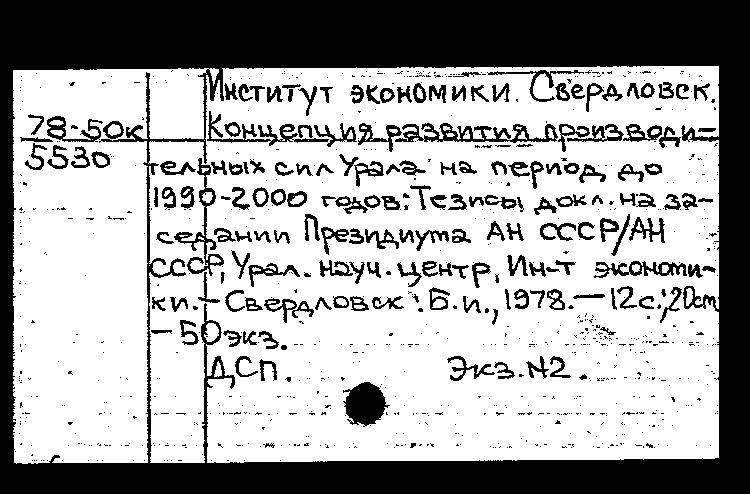 Институт экономики. Свердловск.
78-50к Концепция развития производи-
5530 тельных сил Урала на период до
1990-2000 годов: Тезисы докл. на за-
седании Президиума АН СССР/АН
СССР, Урал. науч. центр, Ин-т экономи-
ки. - Свердловск: Б.и., 1978. - 12с.; 20см
- 50экз.
ДСП. Экз. №2.